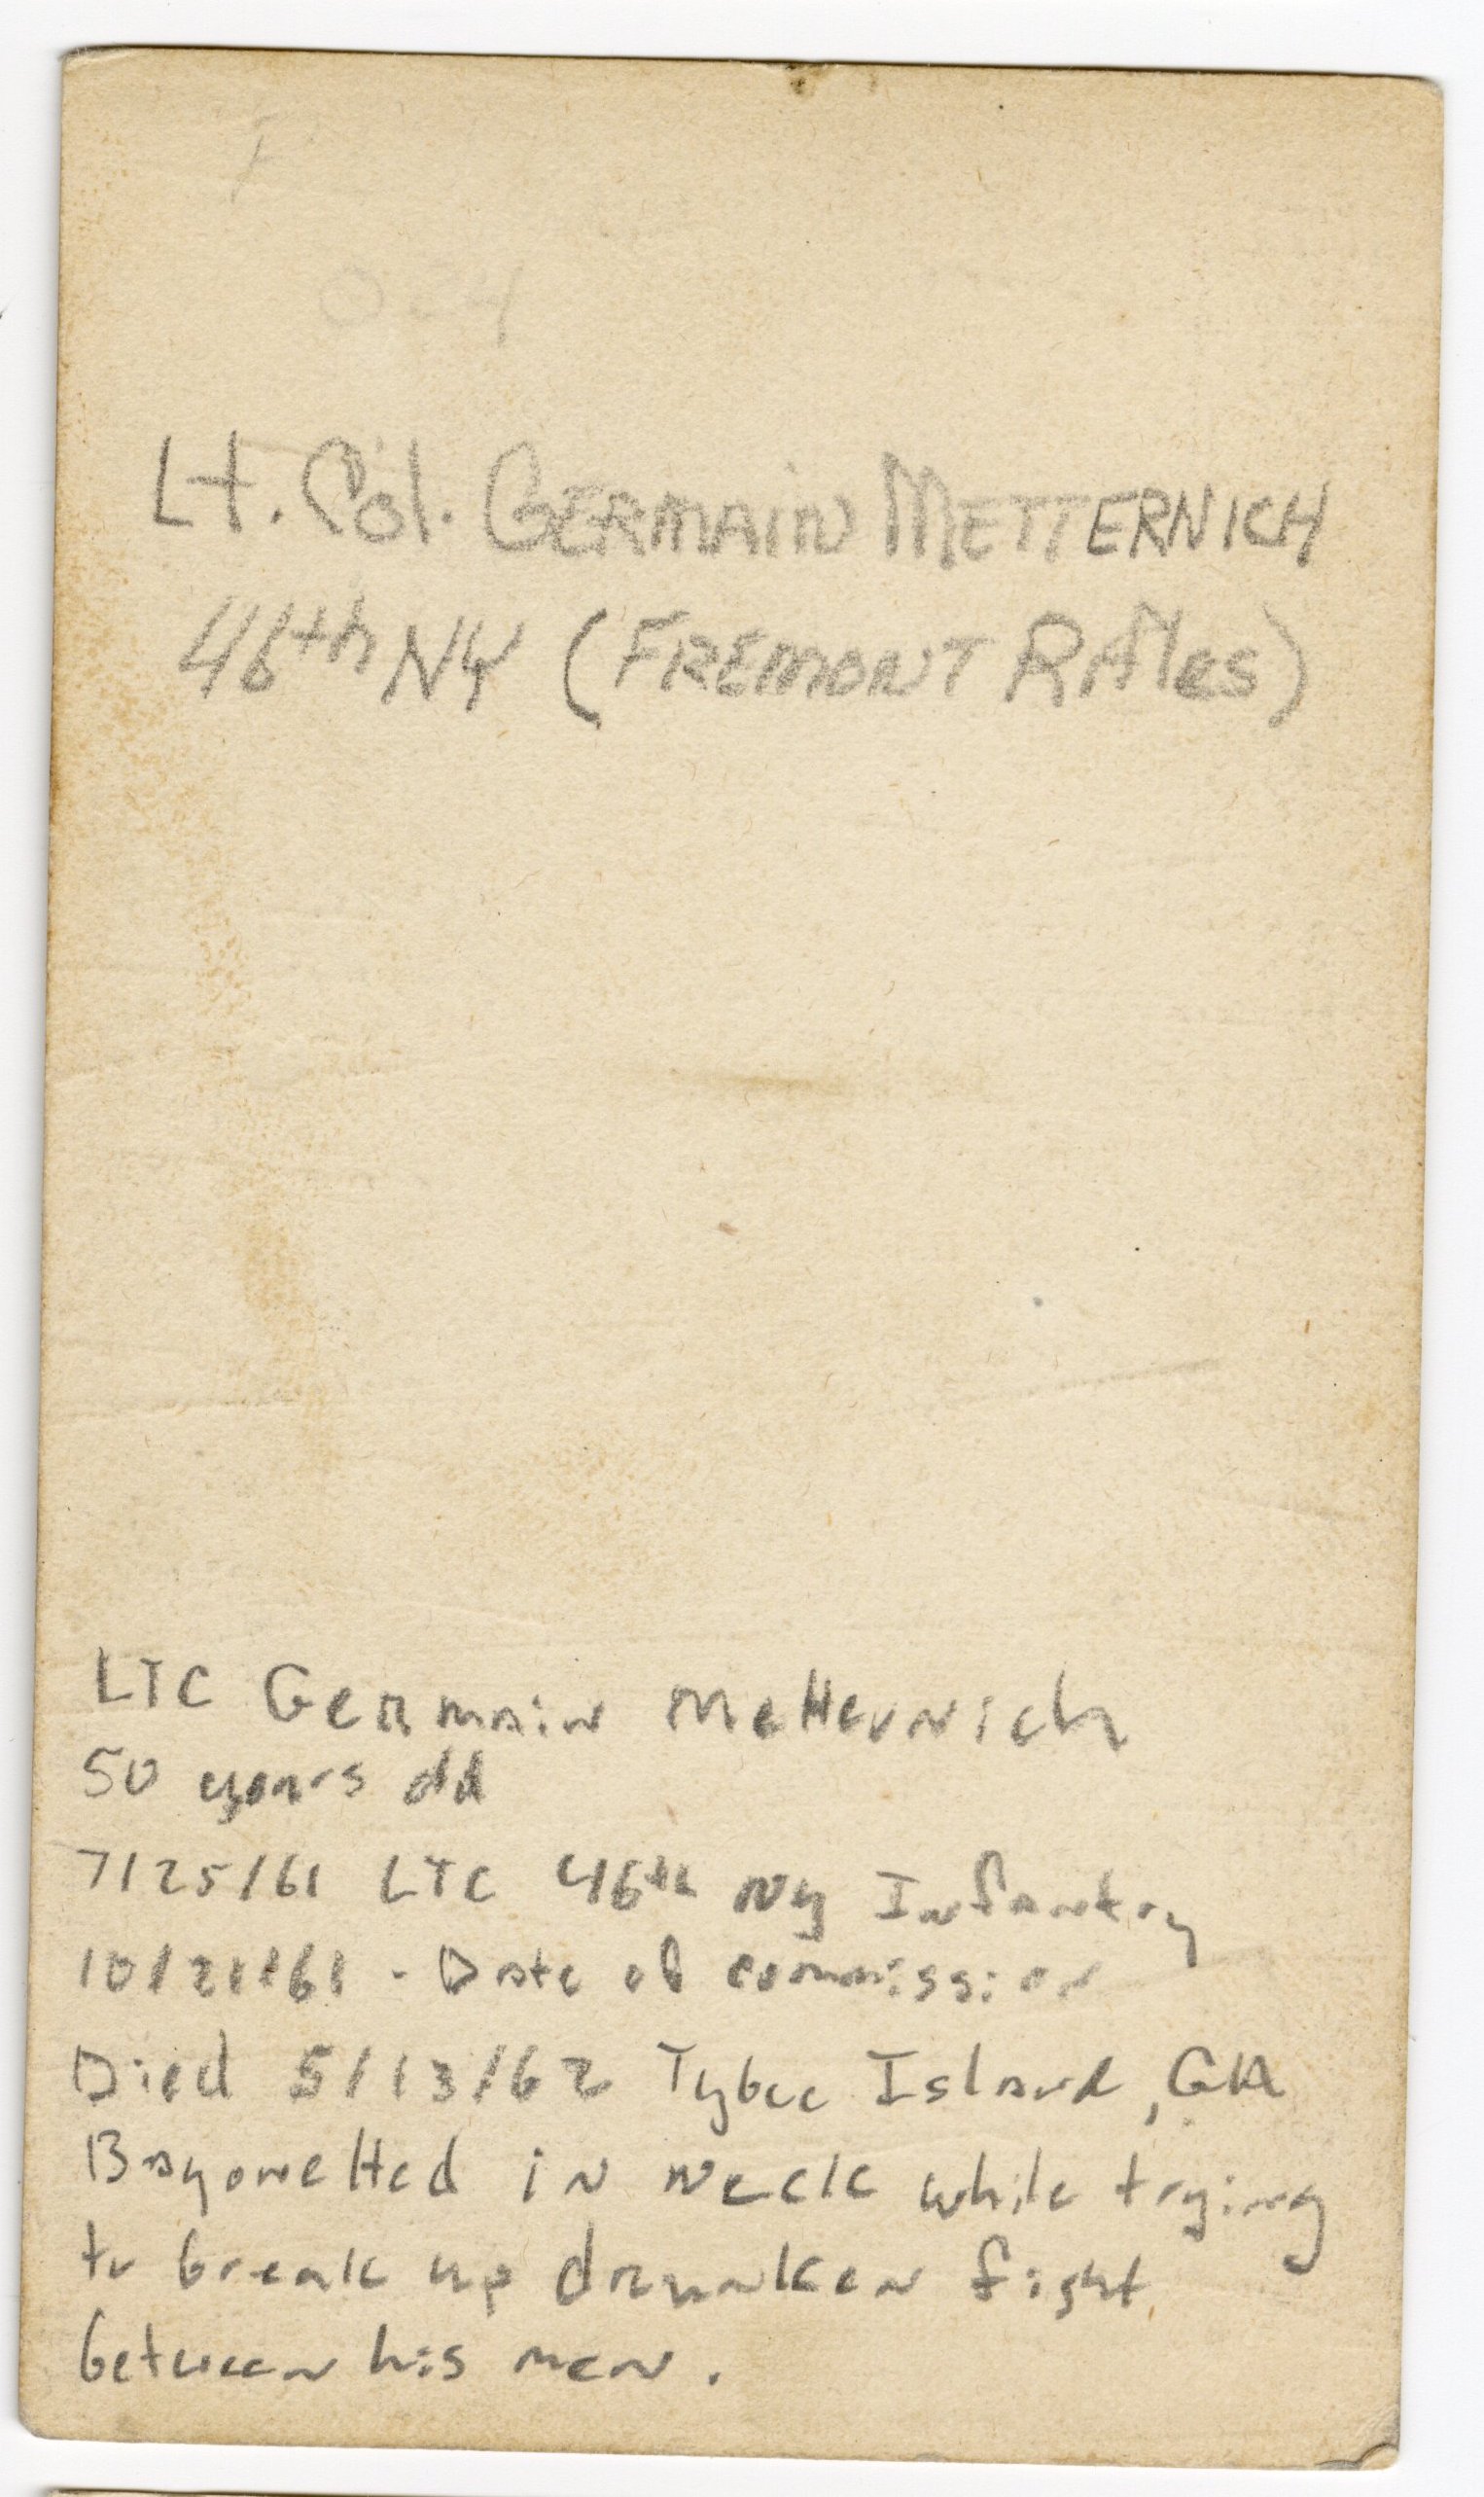 Lt. Col. GERMAIN METTERNICH
46th NY (FREMONT Rifles)
LTC Germain Metternich
50 years old
7/25/61 LTC 46th NY Infantry
10/21/61 - Date of commission
Died 5/13/62 Tybee Island, GA
Bayonetted in neck while trying
to break up drunken fight
between his men.